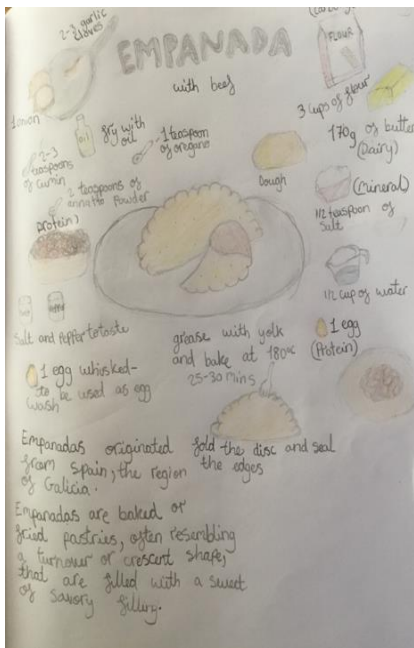 2-3 garlic
cloves
EMPANADA
with beef
FLOUR
3 cups of flour
1 onion
OIL
fry with
oil
1 teaspoon
of oregano
170g of butter
(Dairy)
2-3
teaspoons
of cumin
2 teaspoons of
annatto powder
Dough
(mineral)
1/2 teaspoon of
Salt
protein)
1/2 cup of water
Salt and Pepper to taste
grease with yolk
and bake at 180°c
25-30 mins
1 egg
(Protein)
1 egg whisked-
to be used as egg
wash
fold the disc and seal
the edges
Empanadas originated
from Spain, the region
of Galicia.
Empanadas are baked or
fried pastries, often resembling
a turnover or crescent shape,
that are filled with a sweet
of savory filling.